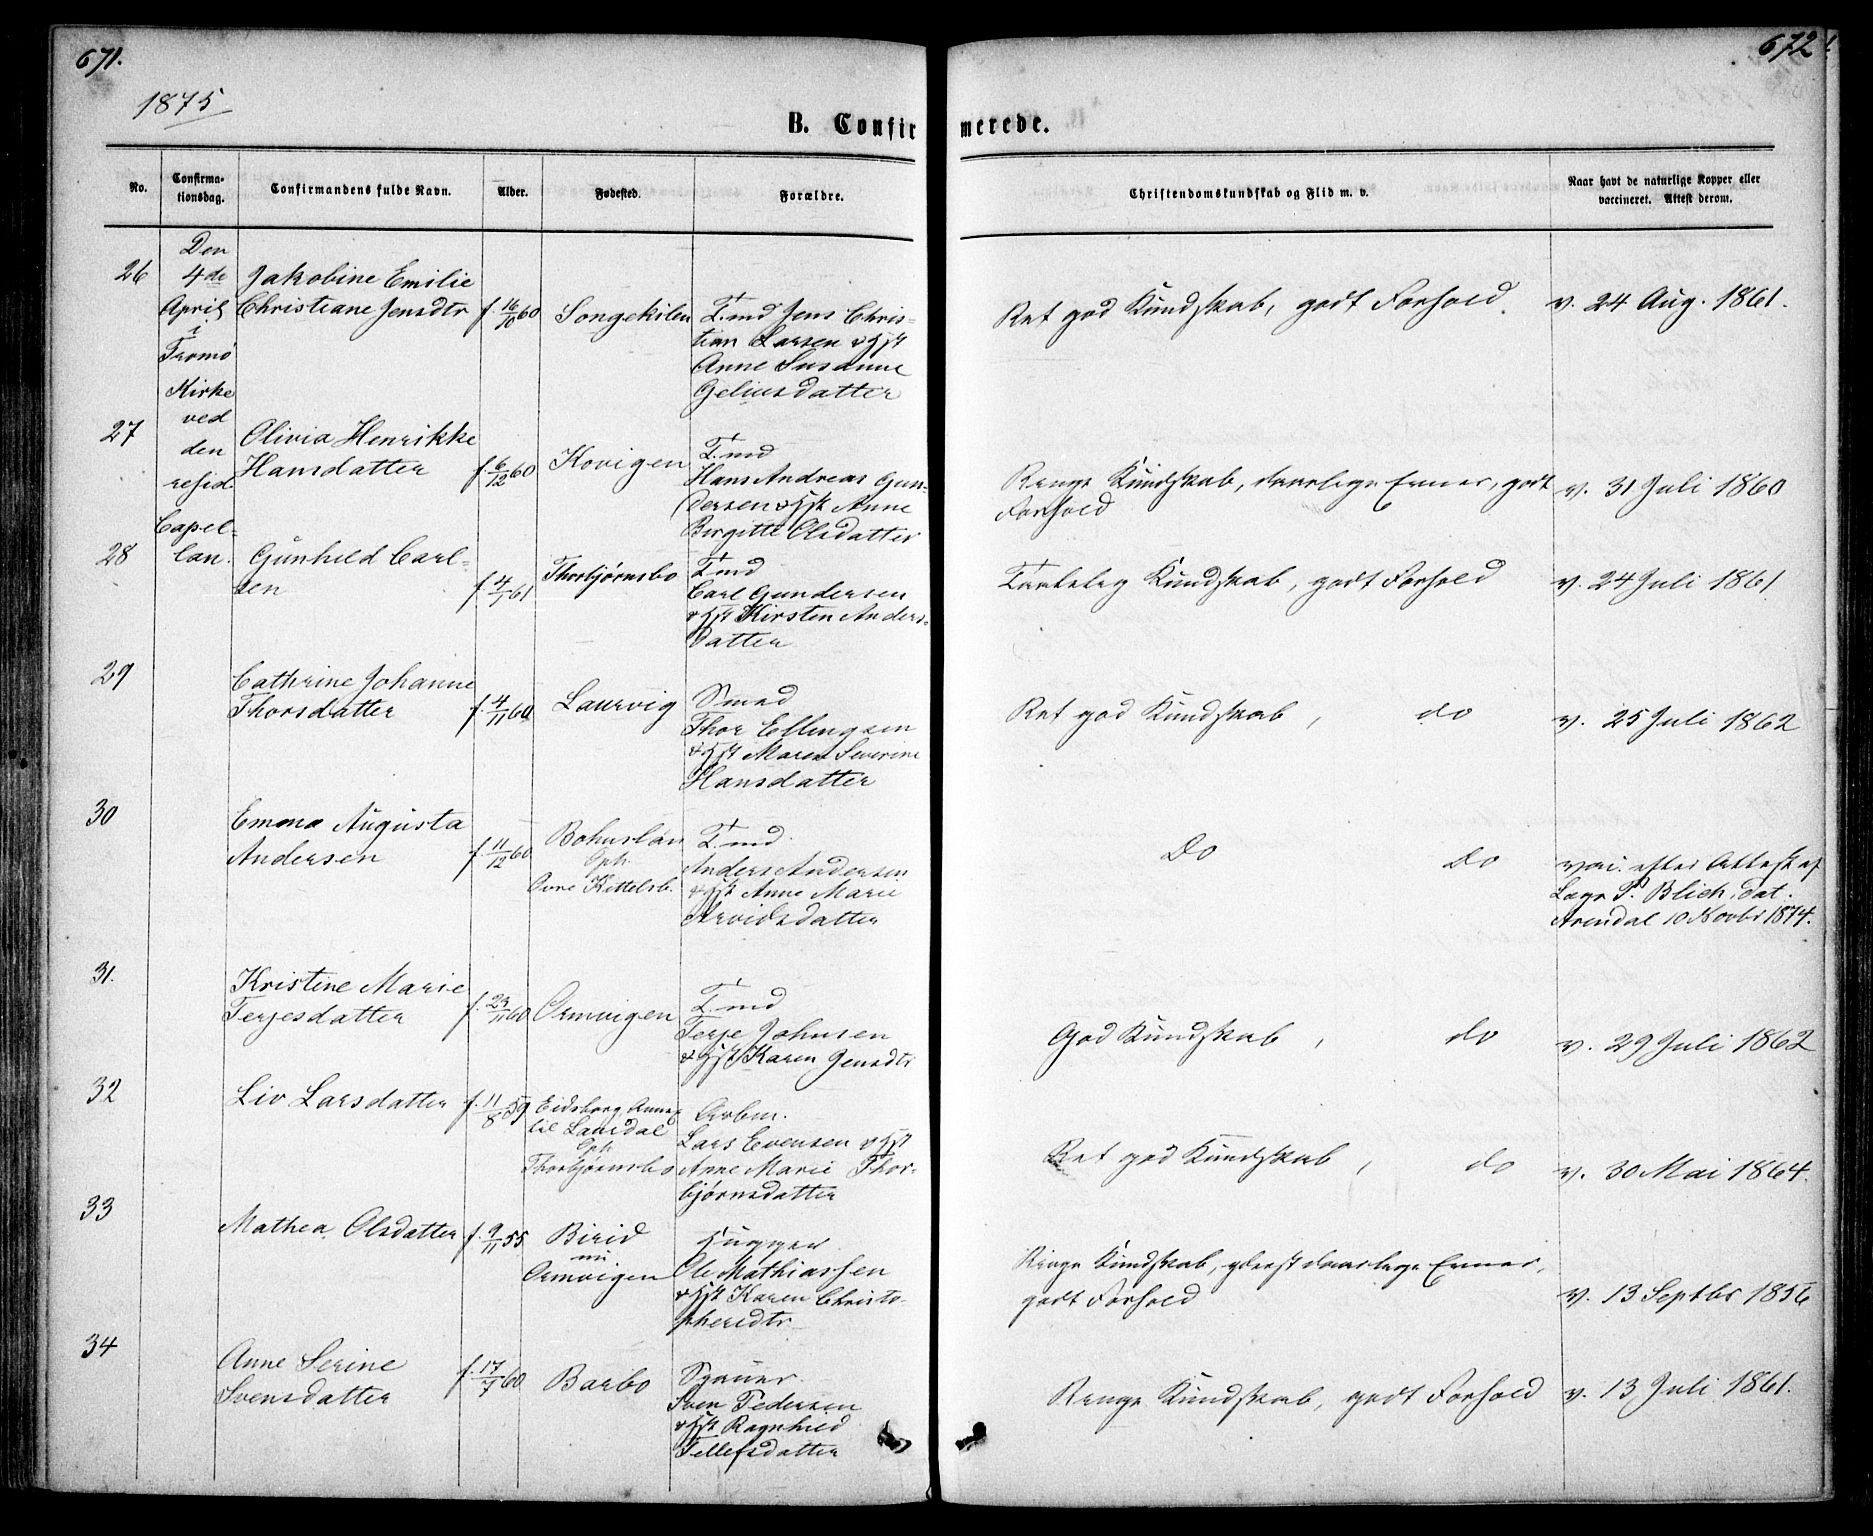 671.
672
1875
B. Confirmerede.
No.
Confirmationsdag.
Confirmandens fulde Navn.
Alder.
Fødested.
Forældre.
Christendomskundskab og Flid m. v.
Naar havt de naturlige Kopper eller
vaccineret. Attest derom.
Den
4de
April
i
Tromø
Kirke
ved
den
resid.
Capel-
lan.
26
Jakobine Emilie
Christiane Jensdtr
f. 16/10 60
Songekilen
T.md Jens Chris-
tian Larsen & Hst
Anne Susanne
Geliusdatter
Ret god Kundskab, godt Forhold.
v. 24 Aug. 1861.
27
Olivia Henrikke
Hansdatter
f. 6/12 60
Kovigen
T.md
Hans Andreas Gun-
dersen & Hst Anne
Birgitte Olsdatter
Ringe Kundskab, daarlige Evner, godt
Forhold
v. 31 Juli 1860
28
Gunhild Carl-
sen
f. 4/1 61
Thorbjørnsbo
T.md
Carl Gundersen
& Hst Kirsten Anders-
datter
Taalelig Kundskab, godt Forhold
v. 24 Juli 1861
29
Cathrine Johanne
Thorsdatter
f. 4/11 60
Laurvig
Smed
Thor Ellingsen
& Hst Maren Severine
Hansdatter
Ret god Kundskab, do
v. 25 Juli 1862
30
Emma Augusta
Andersen
f. 11/12 60
Bohuslän
Oph.
Ovre Kittelsb.
T.md.
Anders Andersen
& Hst Anne Marie
Arvidsdatter
Do do
vac. efter Attest af
Læge P. Blich, dat.
Arendal 10 Novbr 1874.
31.
Kristine Marie
Terjesdatter
f. 23/11 60
Ormvigen
T.md
Terje Johnsen
& Hst Karen Jensdtr
God Kundskab, do
v. 29 Juli 1862
32
Liv Larsdatter
f. 11/8 59
Eidsborg, Annex
til Laurdal
Oph.
Thorbjørnsbo
Arbm.
Lars Evensen & Hst
Anne Marie Thor-
bjørnsdatter
Ret god Kundskab, do
v. 30 Mai 1864.
33
Mathea Olsdatter
f. 9/11 55
Birid
nu
Ormvigen
Hugger
Ole Mathiassen
& Hst Karen Christo-
phersdtr
Ringe Kundskab, yderst daarlige Evner,
godt Forhold
v. 13 Septbr 1856
34
Anne Serine
Svensdatter
f. 17/7 60
Barbo
Sven Pedersen
& Hst Ragnhild
Tellefsdatter
Ringe Kundskab, godt Forhold
v. 13 Juli 1861.